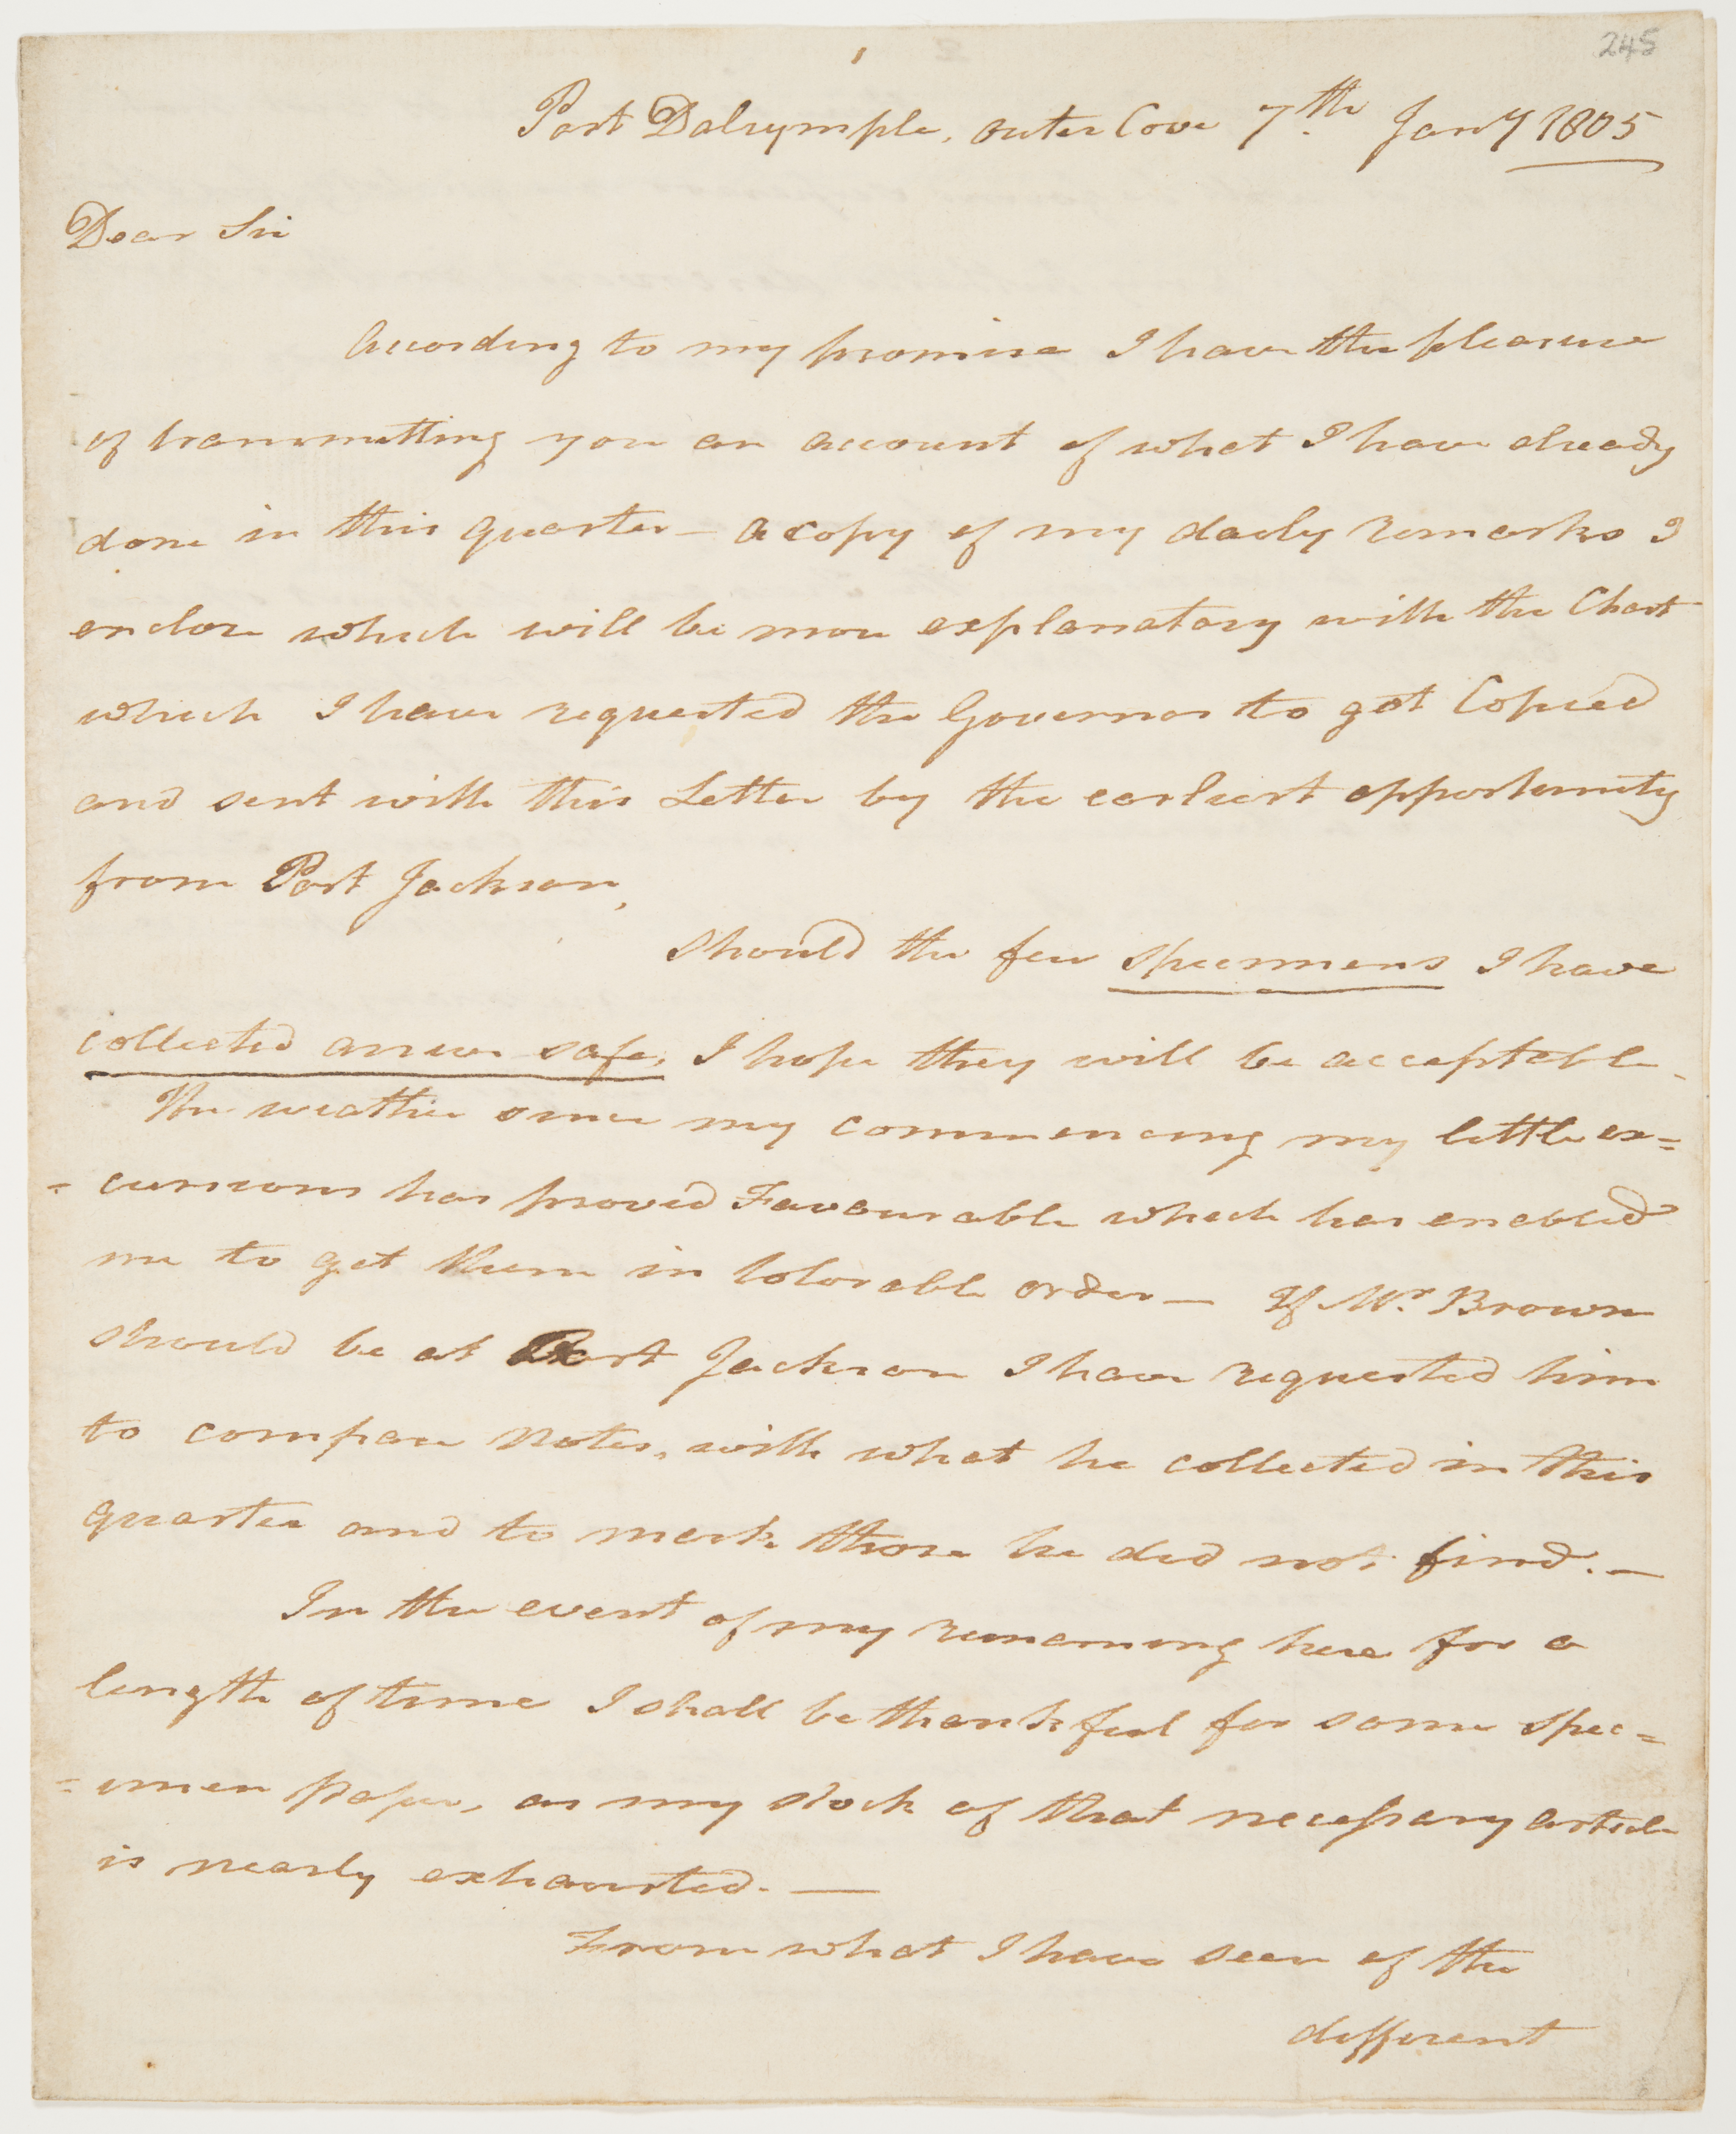 245
1
Port Dalrymple, outer Cove 7th Jany 1805
Dear Sir
According to my promise I have the pleasure
of transmitting you an account of what I have already
done in this quarter — a copy of my daily remarks I
enclose which will be more explanatory with the Chart
which I have requested the Governor to get Copied
and sent with this Letter by the earliest opportunity
from Port Jackson,
Should the few specimens I have
collected arrive safe, I hope they will be acceptable.
The weather since my commencing my little ex=
=cursions has proved Favourable which has enabled
me to get them in tolerable order — If Mr. Brown
should be at Port Jackson I have requested him
to compare Notes, with what he collected in this
quarter and to mark those he did not find. —
In the event of my remaining here for a
length of time I shall be thankful for some spec=
=imen paper, as my stock of that necessary article
is nearly exhausted. —
From what I have seen of the
different